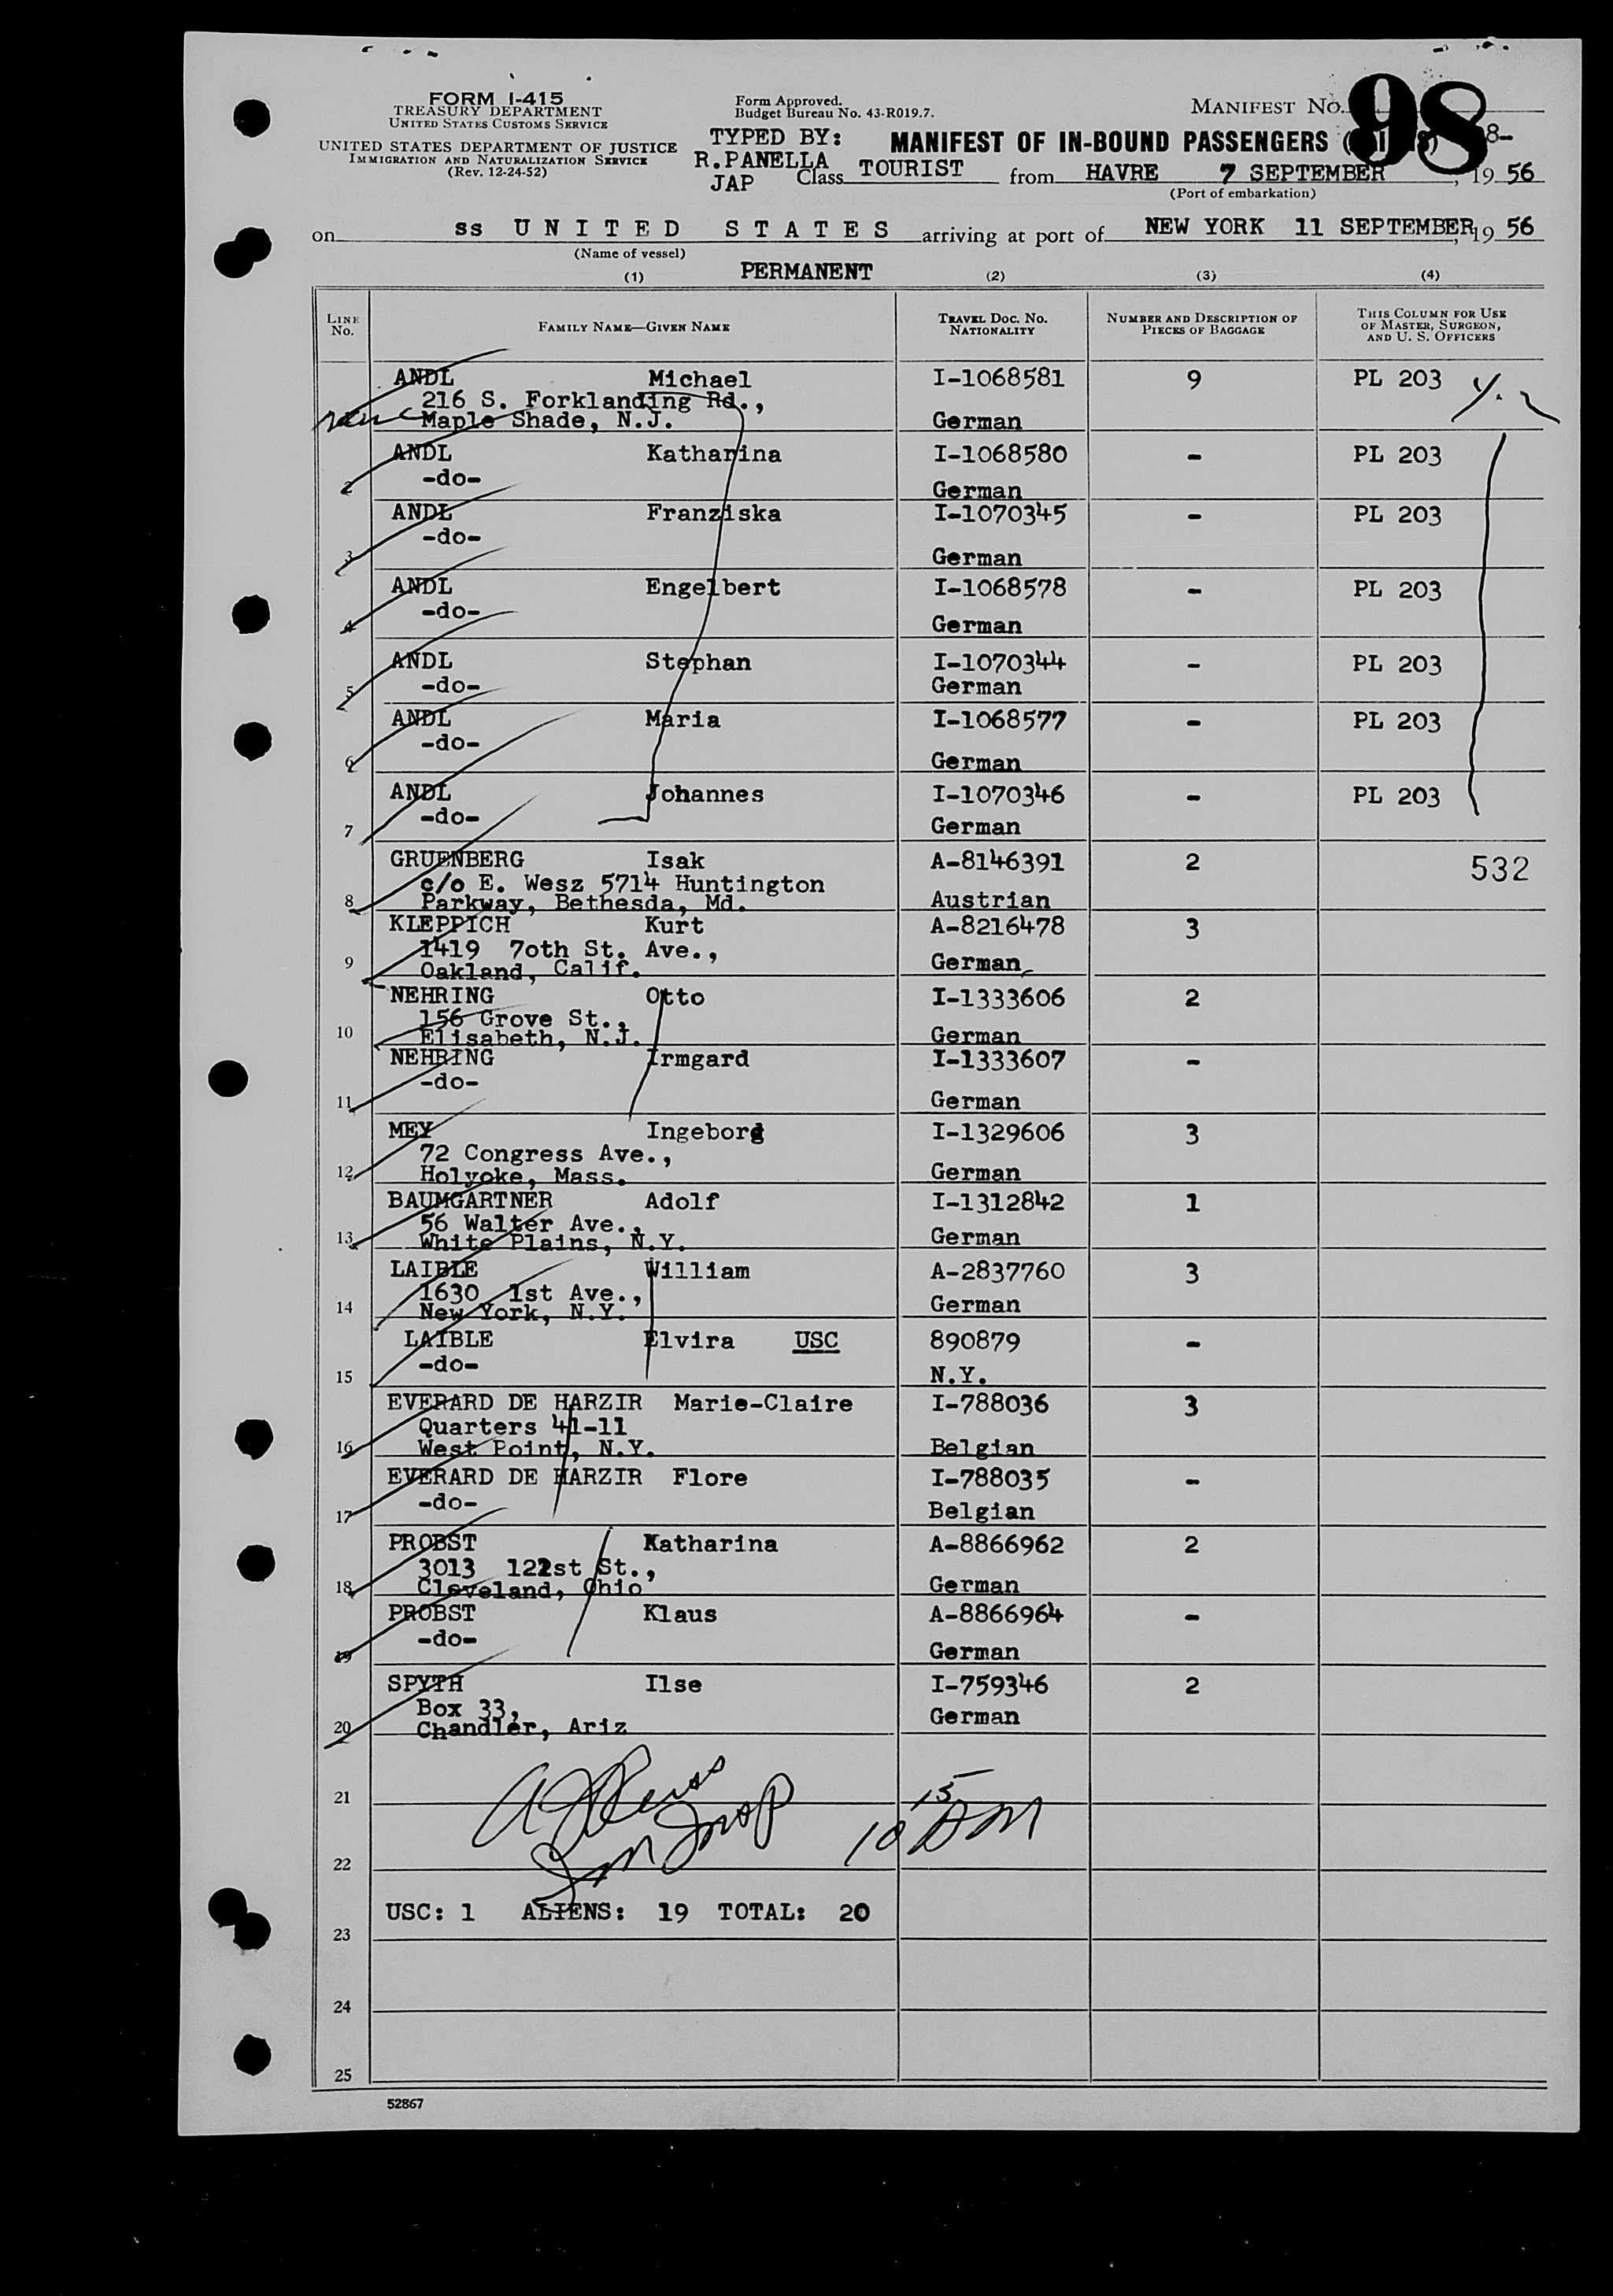 FORM I-415
TREASURY DEPARTMENT
UNITED STATES CUSTOMS SERVICE
UNITED STATES DEPARTMENT OF JUSTICE
IMMIGRATION AND NATURALIZATION SERVICE
(Rev. 12-24-52)
Form Approved.
Budget Bureau No. 43-R019.7.
TYPED BY:
R.PANELLA
JAP
MANIFEST No. 98
MANIFEST OF IN-BOUND PASSENGERS 8-
Class TOURIST from HAVRE 7 SEPTEMBER, 19 56
(Port of embarkation)
on ss UNITED STATES arriving at port of NEW YORK 11 SEPTEMBER, 19 56
(Name of vessel)
(1) PERMANENT (2) (3) (4)
LINE No. FAMILY NAME—GIVEN NAME TRAVEL DOC. NO. NATIONALITY NUMBER AND DESCRIPTION OF PIECES OF BAGGAGE THIS COLUMN FOR USE OF MASTER, SURGEON, AND U. S. OFFICERS
ANDL Michael I-1068581 9 PL 203
216 S. Forklanding Rd.,
Maple Shade, N.J. German
ANDL Katharina I-1068580 - PL 203
2 -do- German
ANDL Franziska I-1070345 - PL 203
3 -do- German
ANDL Engelbert I-1068578 - PL 203
4 -do- German
ANDL Stephan I-1070344 - PL 203
5 -do- German
ANDL Maria I-1068577 - PL 203
6 -do- German
ANDL Johannes I-1070346 - PL 203
7 -do- German
GRUENBERG Isak A-8146391 2 532
c/o E. Wesz 5714 Huntington
8 Parkway, Bethesda, Md. Austrian
KLEPPICH Kurt A-8216478 3
1419 7oth St. Ave.,
9 Oakland, Calif. German
NEHRING Otto I-1333606 2
156 Grove St.,
10 Elisabeth, N.J. German
NEHRING Irmgard I-1333607 -
-do-
11 German
MEY Ingeborg I-1329606 3
72 Congress Ave.,
12 Holyoke, Mass. German
BAUMGARTNER Adolf I-1312842 1
56 Walter Ave.,
13 White Plains, N.Y. German
LAIBLE William A-2837760 3
1630 1st Ave.,
14 New York, N.Y. German
LAIBLE Elvira USC 890879 -
-do-
15 N.Y.
EVERARD DE HARZIR Marie-Claire I-788036 3
Quarters 41-11
16 West Point, N.Y. Belgian
EVERARD DE HARZIR Flore I-788035 -
-do-
17 Belgian
PROBST Katharina A-8866962 2
3013 122st St.,
18 Cleveland, Ohio German
PROBST Klaus A-8866964 -
-do-
19 German
SPYTH Ilse I-759346 2
Box 33,
20 Chandler, Ariz German
21
22
USC: 1 ALIENS: 19 TOTAL: 20
23
24
25
52867